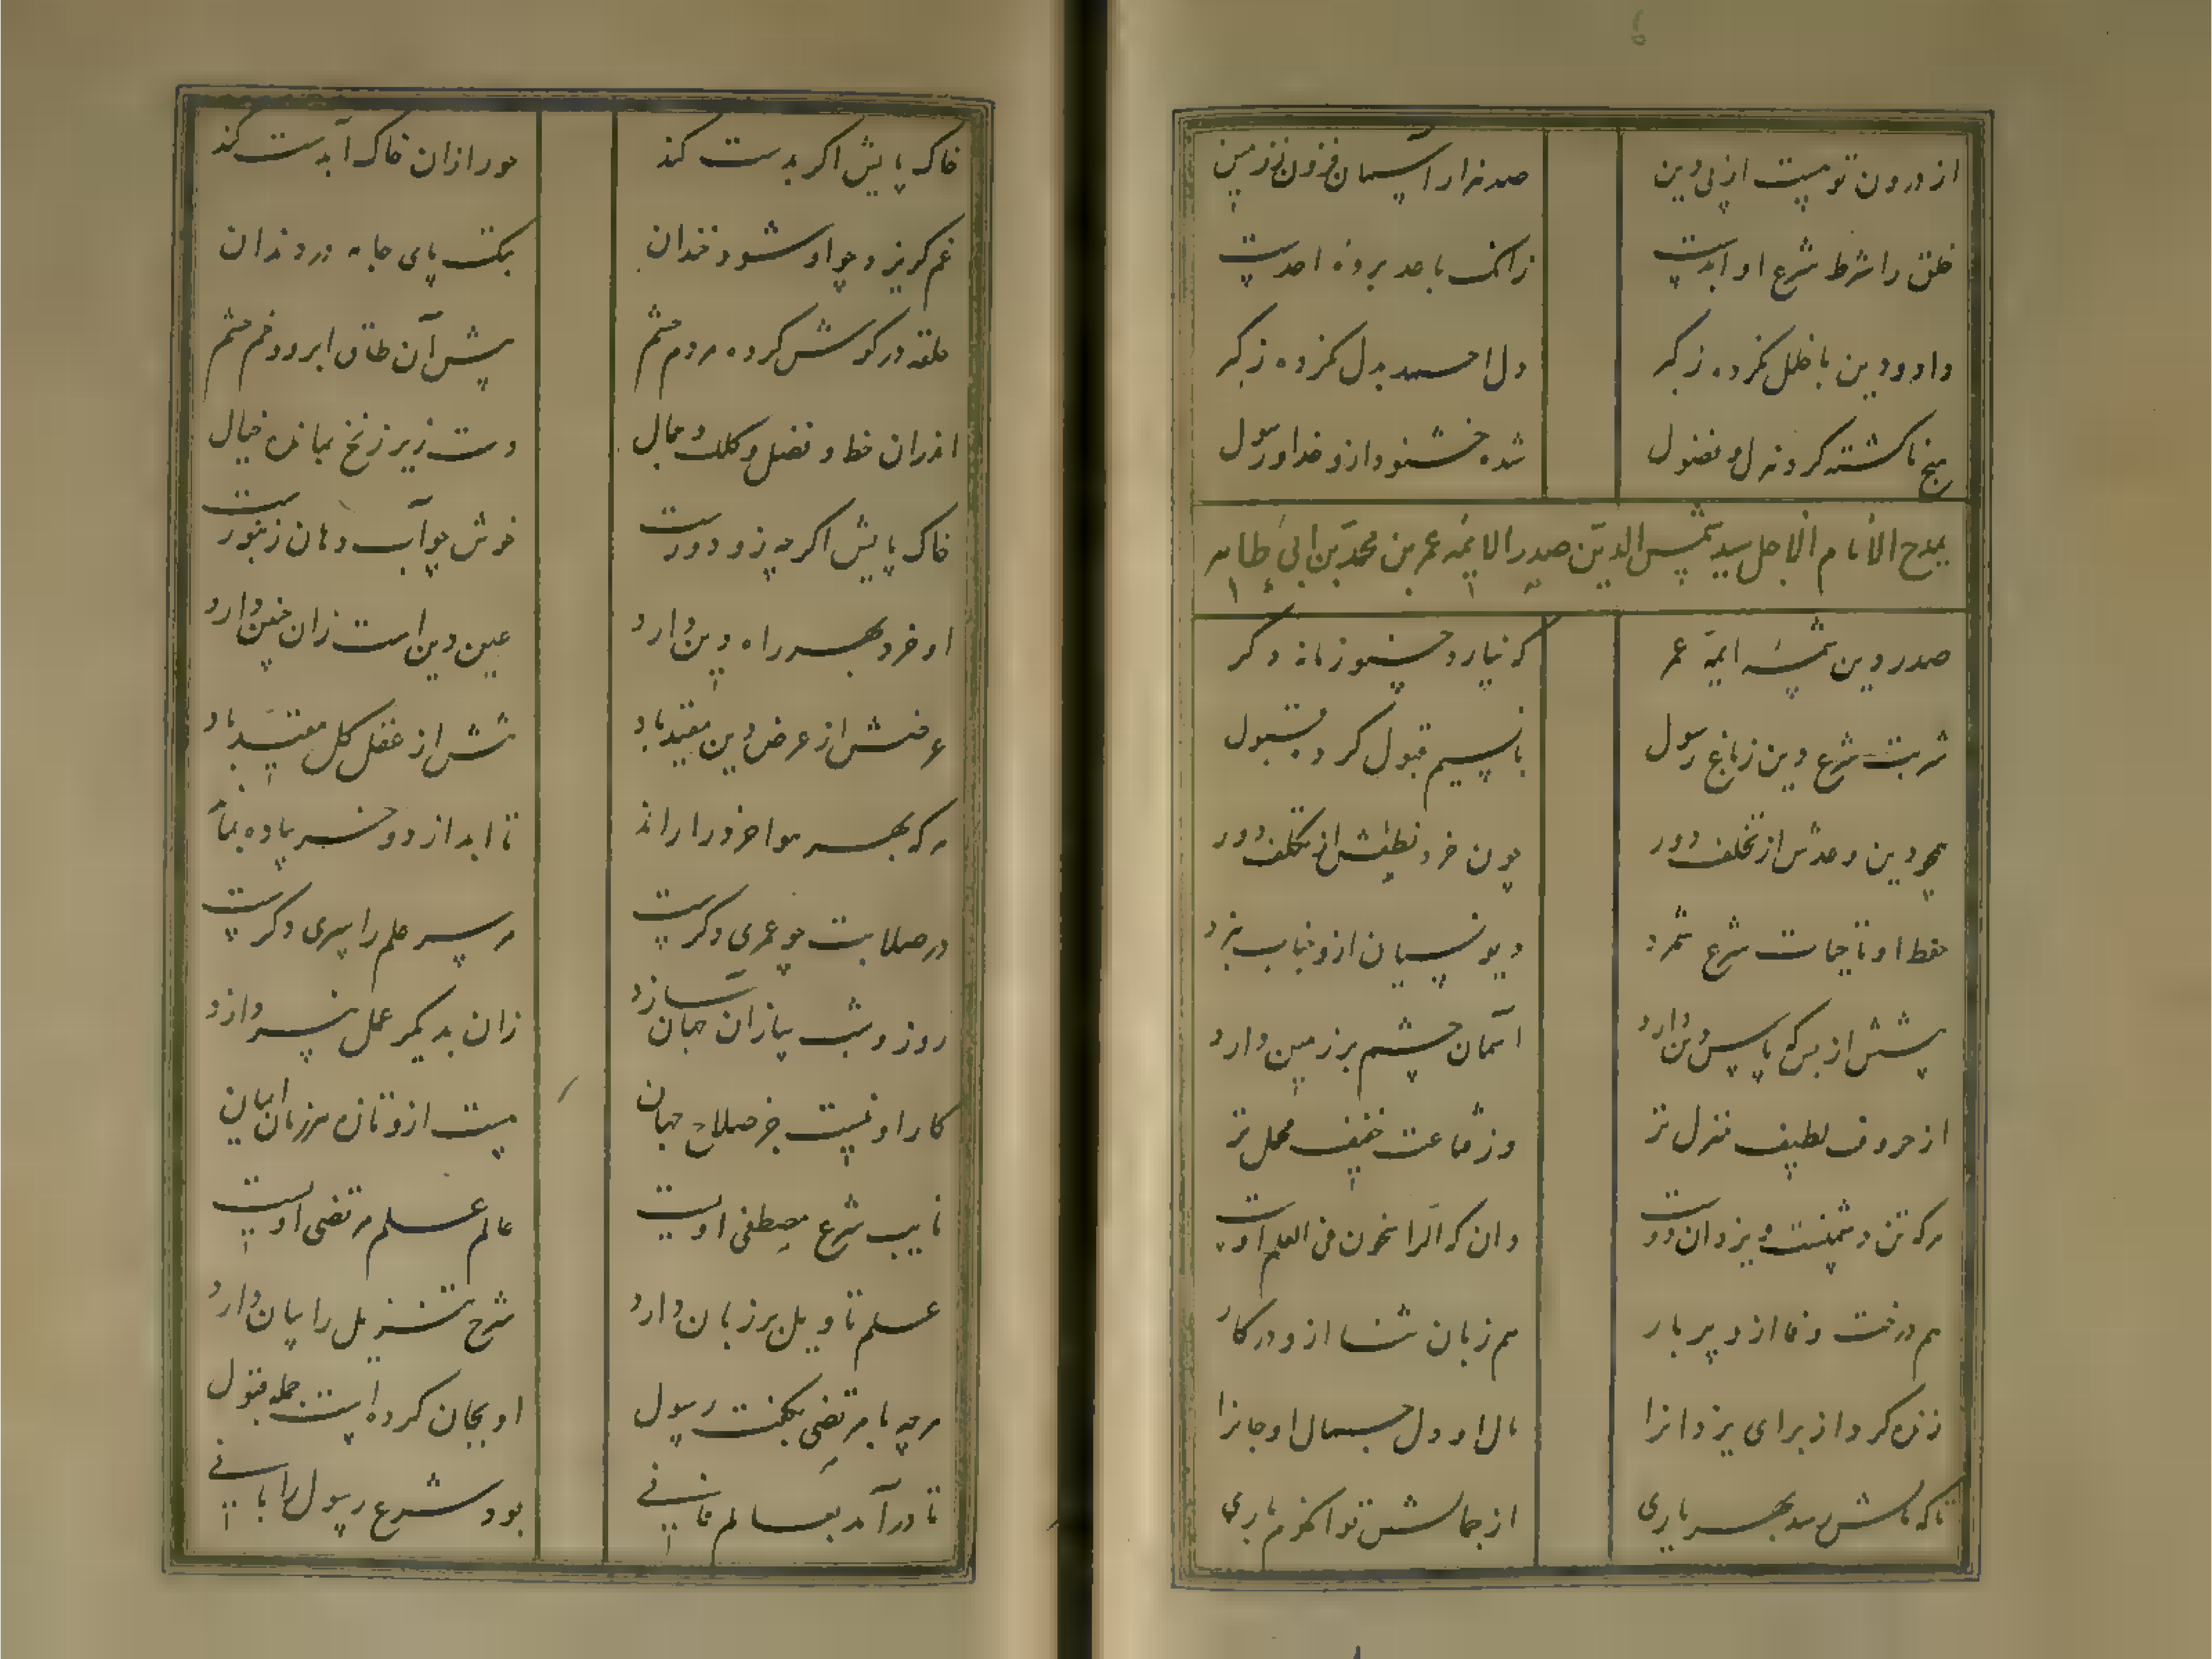 از درون تو هست از پی دین صد هزار آسمان فزون ز زمین
خلق را شرط شرع او ابدست زانک با صد بروناحدست
داد و دین با خلل نکرده ز کبر دل احمد بدل نکرده ز کبر
هیچ ناکشته کرد نه لو فضول شده خشنود ازو خدا و رسول
یمدح الأمام الأجل سید شمس الدین صدر الائمه عمر بن محمد بن ابی طاهر
صدر دین شمسه ایمه عمر که نیارد چنو زمانه دکر
شربت شرع دین ز باغ رسول با نسیم قبول کرد قبول
همچو دین وعدش از تخلف دور چون خرد نطقش از تکلف دور
حفظ او تا حیات شرع شمرد دیو نسیان ازو جناب ببرد
پشتش از بس که پاس دین دارد آسمان چشم بر زمین دارد
از حروف لطیف منزل تر وز قناعت خفیف محمل تر
هرکه تن دشمنست و یزدان دوست وان که الراسخون فی العلم اوست
هم درخت وفا ازو پر بار هم زبان ثنا ازو در کار
زنده کرد از برای یزدانرا مال او دل جمال او جانرا
تا که مالش رسد بهر یاری از جمالش توانکرم باری
خاک پایش اکر بدست کند حور ازان خاک آبدست کند
غم کریزد چو او شود خندان بکسد پای جامه درد دندان
حلقه در کوش کرده مردم چشم پیش آن طاق ابرو و خم چشم
اندران خط و فضل و کلک و جمال دست زیر زنخ بمانده خیال
خاک پایش اکر چه زو دورست خوش چو آب دهان زنبورست
او خرد بهر راه دین دارد عین دین است زان چنین دارد
عرضش از عرض دین مقید باد تنش از عقل کل مقید باد
هرکه بهر هوا خرد را راند تا ابد از دو خر پیاده بماند
در صلابت چو عمری دکرست هر سپر علم را سری دکرست
روز و شب ساز آن جهان سازد زان بدیکر عمل نپردازد
کار او نیست جز صلاح جهان هست ازو تازه مرزمان ایمان
نایب شرع مصطفی اوست عالم علم مرتضی اوست
علم تاویل بر زبان دارد شرح تنزیل را بیان دارد
هرچه با مرتضی بکفت رسول او بجان کرده است جمله قبول
تا در آمد بعالم فانی بود شرع رسول را بانی